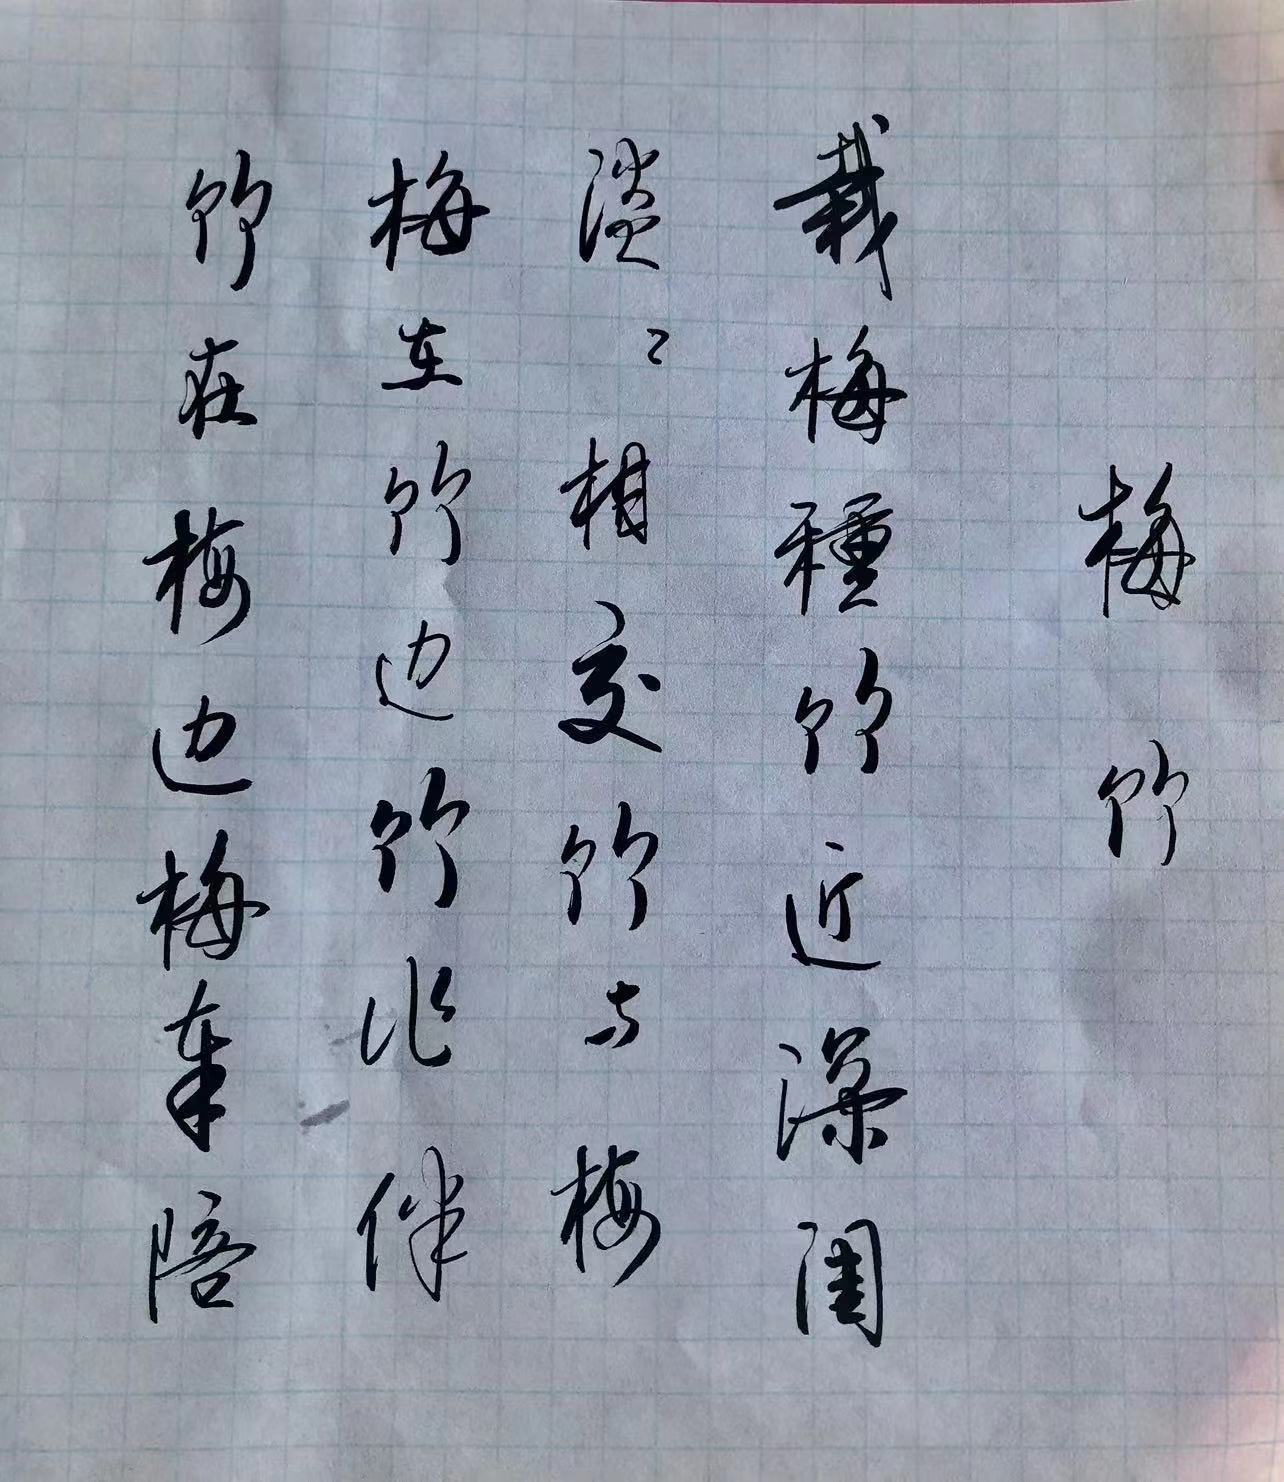 梅竹
栽梅種竹近深闺
淡々相交竹与梅
梅在竹边竹作伴
竹在梅边梅来陪